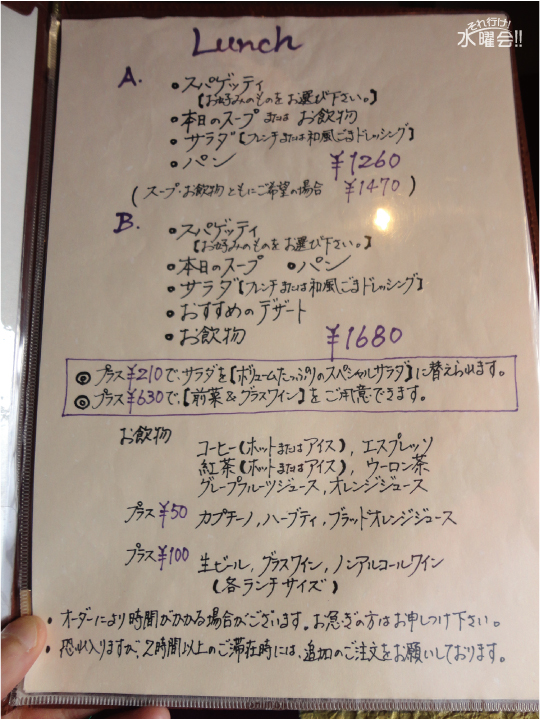 それ行け!
水曜会!!
Lunch
A.
• スパゲッティ
【お好みのものをお選び下さい。】
• 本日のスープ または お飲物
• サラダ【フレンチまたは和風ごまドレッシング】
• パン ¥1260
(スープ・お飲物ともにご希望の場合 ¥1470)
B.
• スパゲッティ
【お好みのものをお選び下さい。】
• 本日のスープ • パン
• サラダ【フレンチまたは和風ごまドレッシング】
• おすすめのデザート
• お飲物 ¥1680
◎ プラス¥210で、サラダを【ボリュームたっぷりのスペシャルサラダ】に替えられます。
◎ プラス¥630で、【前菜&グラスワイン】をご用意できます。
お飲物
コーヒー(ホットまたはアイス), エスプレッソ
紅茶(ホットまたはアイス), ウーロン茶
グレープフルーツジュース, オレンジジュース
プラス¥50 カプチーノ, ハーブティ, ブラッドオレンジジュース
プラス¥100 生ビール, グラスワイン, ノンアルコールワイン
(各ランチサイズ)
• オーダーにより時間がかかる場合がございます。お急ぎの方はお申しつけ下さい。
• 恐れ入りますが、2時間以上のご滞在時には、追加のご注文をお願いしております。